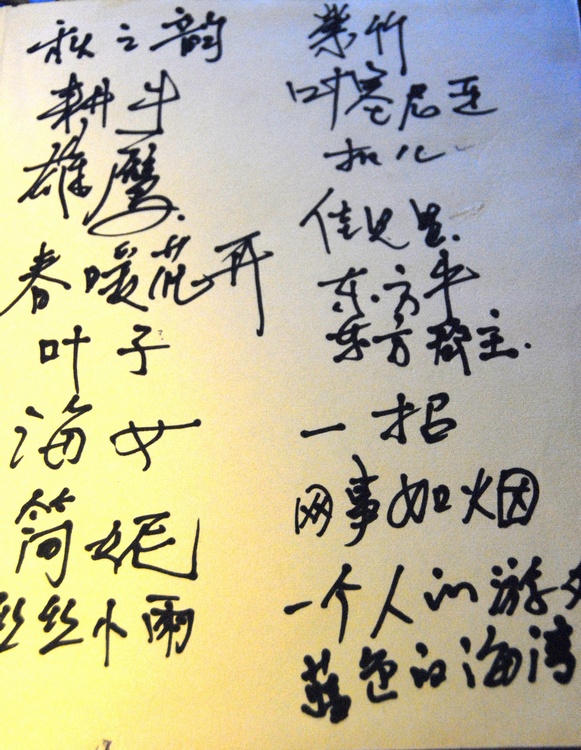 秋之韵
耕牛
雄鹰
春暖花开
叶子
海女
简妮
丝丝小雨
紫竹
叶塞尼亚
扣儿
佳思
东方平
东方君主
一招
网事如烟
一个人的游
蓝色的海湾